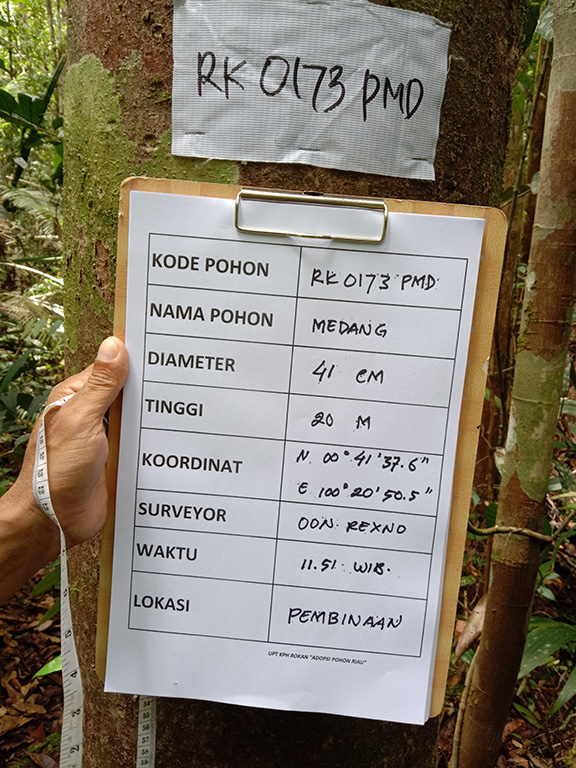 RK 0173 PMD
KODE POHON RK 0173 PMD
NAMA POHON MEDANG
DIAMETER 41 CM
TINGGI 20 M
KOORDINAT N. 00° 41' 37.6"
E. 100° 20' 50.5"
SURVEYOR OON REXNO
WAKTU 11.51 WIB.
LOKASI PEMBINAAN
UPT KPH ROKAN "ADOPSI POHON RIAU"
54
55
56
57
58
59